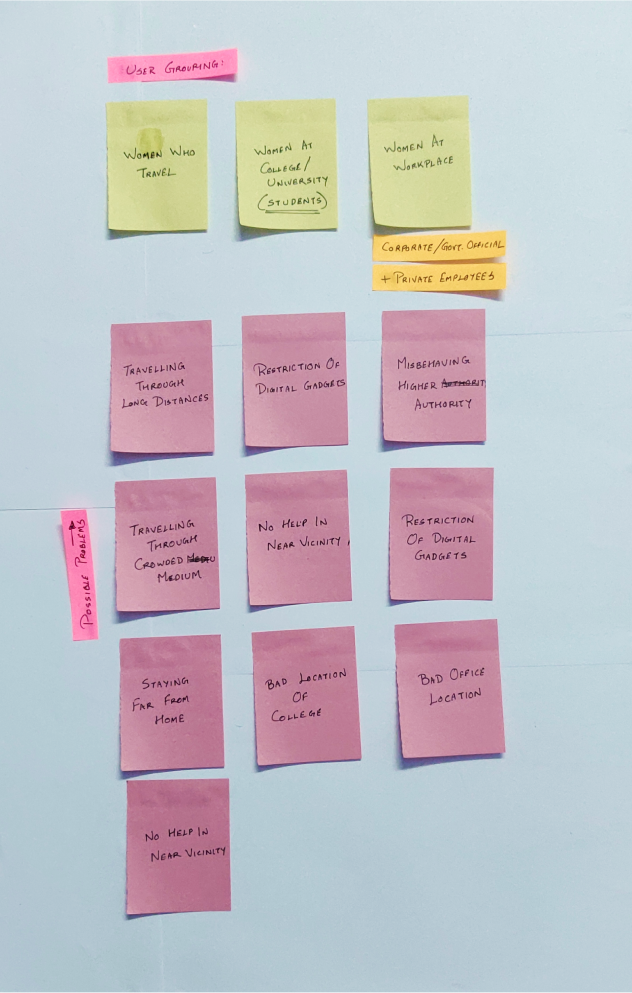 USER GROUPING:
WOMEN WHO
TRAVEL
WOMEN AT
COLLEGE/
UNIVERSITY
(STUDENTS)
WOMEN AT
WORKPLACE
CORPORATE/GOVT. OFFICIAL
+ PRIVATE EMPLOYEES
POSSIBLE PROBLEMS →
TRAVELLING
THROUGH
LONG DISTANCES
RESTRICTION OF
DIGITAL GADGETS
MISBEHAVING
HIGHER AUTHORIT
AUTHORITY
TRAVELLING
THROUGH
CROWDED
MEDIUM
NO HELP IN
NEAR VICINITY
RESTRICTION
OF DIGITAL
GADGETS
STAYING
FAR FROM
HOME
BAD LOCATION
OF
COLLEGE
BAD OFFICE
LOCATION
NO HELP IN
NEAR VICINITY